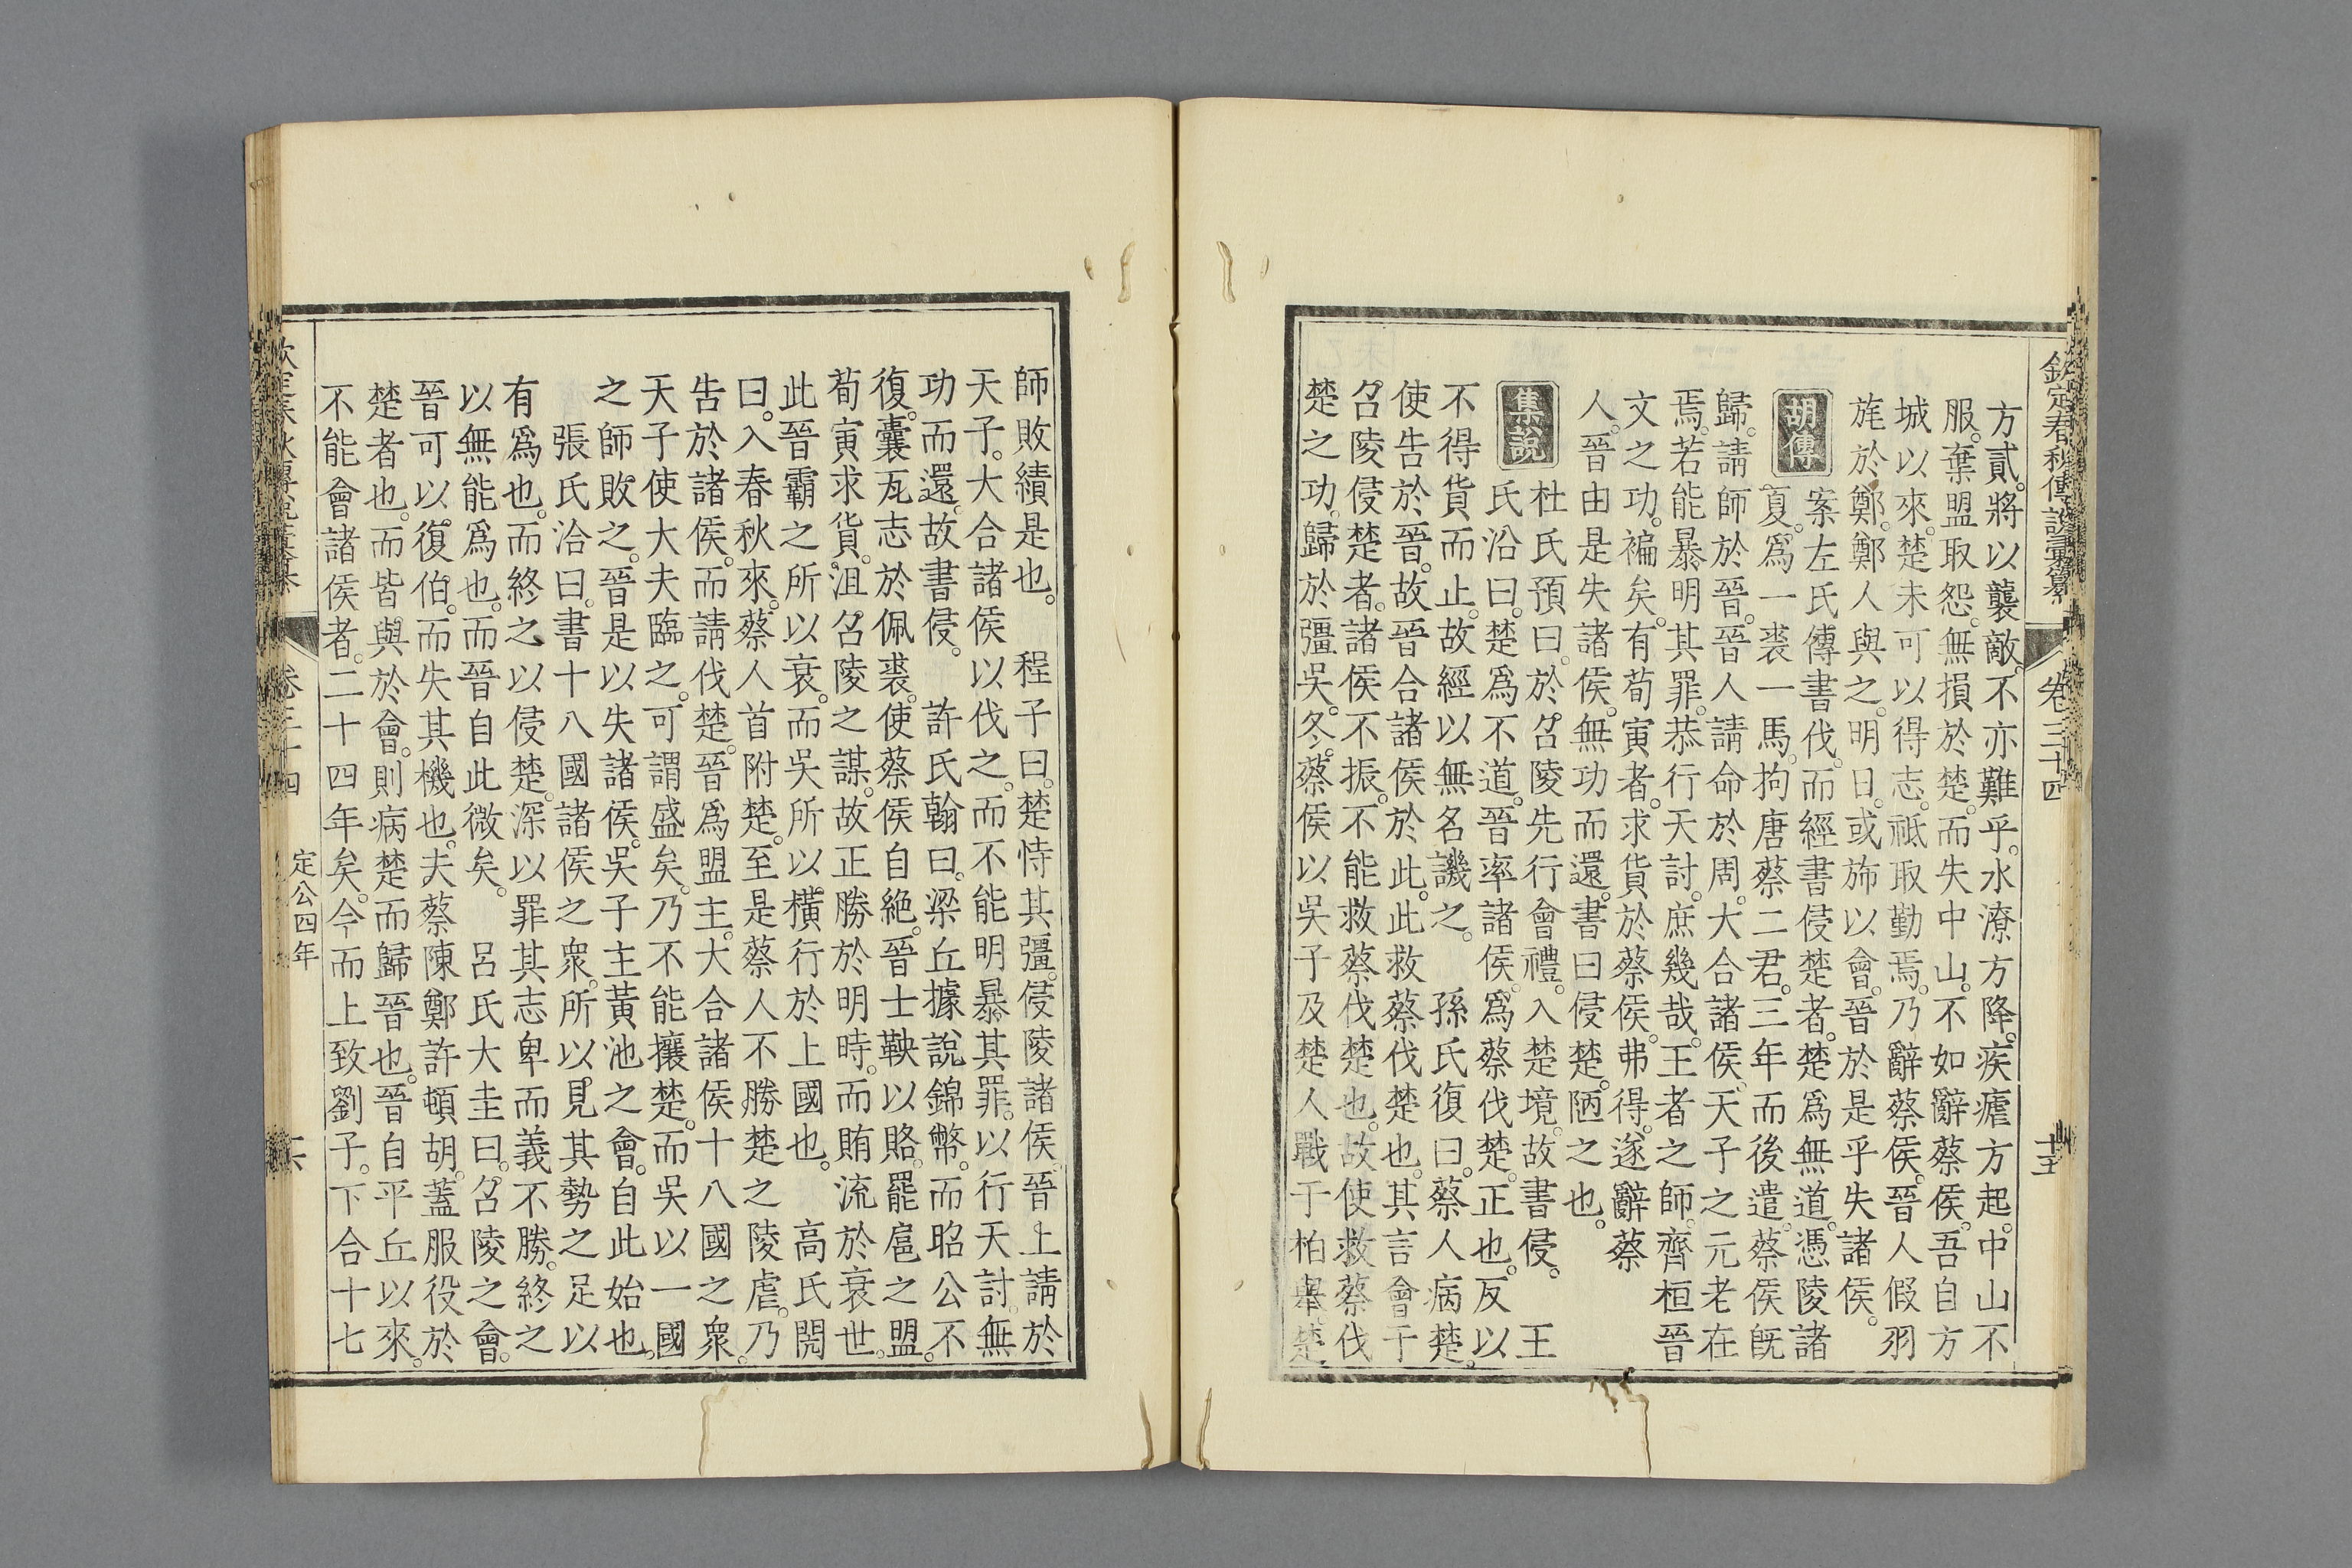 欽定春秋傳說彙纂 卷三十四 十五
方貳。將以襲敵。不亦難乎。水潦方降。疾瘧方起。中山不
服。棄盟取怨。無損於楚。而失中山。不如辭蔡侯。吾自方
城以來。楚未可以得志。祗取勤焉。乃辭蔡侯。晉人假羽
旄於鄭。鄭人與之。明日。或旆以會。晉於是乎失諸侯。
胡傳 案左氏傳書伐。而經書侵楚者。楚爲無道。憑陵諸
夏。爲一裘一馬。拘唐蔡二君。三年而後遣。蔡侯旣
歸。請師於晉。晉人請命於周。大合諸侯。天子之元老在
焉。若能暴明其罪。恭行天討。庶幾哉。王者之師。齊桓晉
文之功。褊矣。有荀寅者。求貨於蔡侯。弗得。遂辭蔡
人。晉由是失諸侯。無功而還。書曰侵楚。陋之也。
集說 杜氏預曰。於召陵先行會禮。入楚境。故書侵。 王
氏沿曰。楚爲不道。晉率諸侯。爲蔡伐楚。正也。反以
不得貨而止。故經以無名譏之。 孫氏復曰。蔡人病楚。
使告於晉。故晉合諸侯於此。此救蔡伐楚也。其言會于
召陵侵楚者。諸侯不振。不能救蔡伐楚也。故使救蔡伐
楚之功。歸於彊吳。冬。蔡侯以吳子及楚人戰于柏舉。楚
師敗績是也。 程子曰。楚恃其彊。侵陵諸侯。晉上請於
天子。大合諸侯以伐之。而不能明暴其罪。以行天討。無
功而還。故書侵。 許氏翰曰。梁丘據說錦幣。而昭公不
復。囊瓦志於佩裘。使蔡侯自絶。晉士鞅以賂。罷扈之盟。
荀寅求貨。沮召陵之謀。故正勝於明時。而賄流於衰世。
此晉霸之所以衰。而吳所以橫行於上國也。 高氏閌
曰。入春秋來。蔡人首附楚。至是蔡人不勝楚之陵虐。乃
告於諸侯。而請伐楚。晉爲盟主。大合諸侯十八國之衆。
天子使大夫臨之。可謂盛矣。乃不能攘楚。而吳以一國
之師。敗之。晉是以失諸侯。吳子主黃池之會。自此始也。
張氏洽曰。書十八國諸侯之衆。所以見其勢之足以
有爲也。而終之以侵楚。深以罪其志卑而義不勝。終之
以無能爲也。而晉自此微矣。 呂氏大圭曰。召陵之會。
晉可以復伯。而失其機也。夫蔡陳鄭許頓胡。蓋服役於
楚者也。而皆與於會。則病楚而歸晉也。晉自平丘以來。
不能會諸侯者。二十四年矣。今而上致劉子。下合十七
卷三十四 定公四年